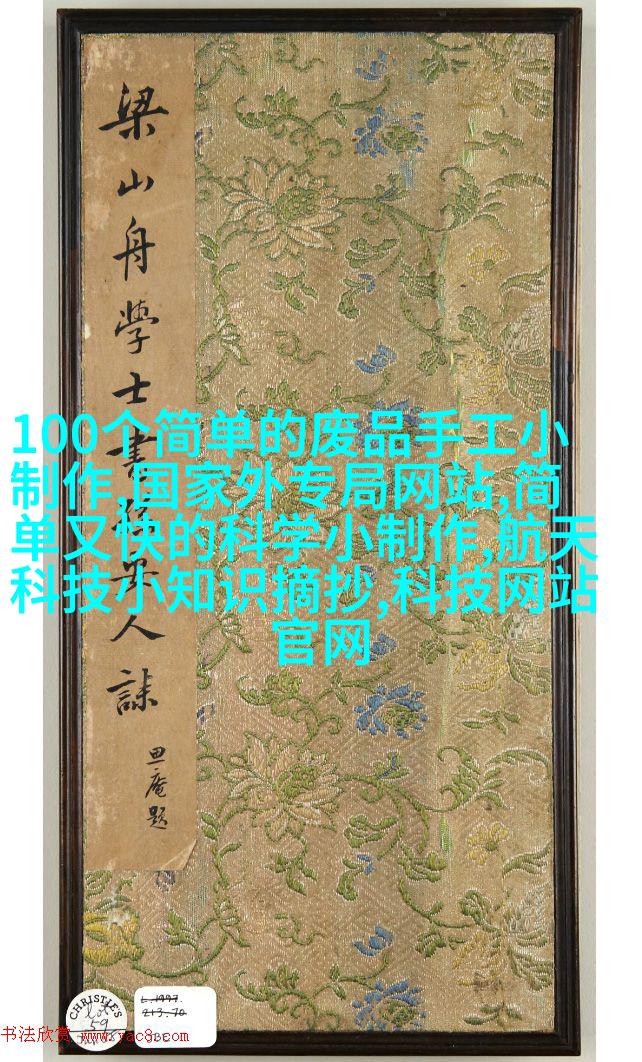 梁山舟學士書孫夫人誄
思庵題
100个简单的废品手工小
制作,国家外专局网站,简
单又快的科学小制作,航天
科技小知识摘抄,科技网站
官网
CHRISTIE'S
Lot
59
L.1997.
213.70
书法欣赏 www.yac8.com